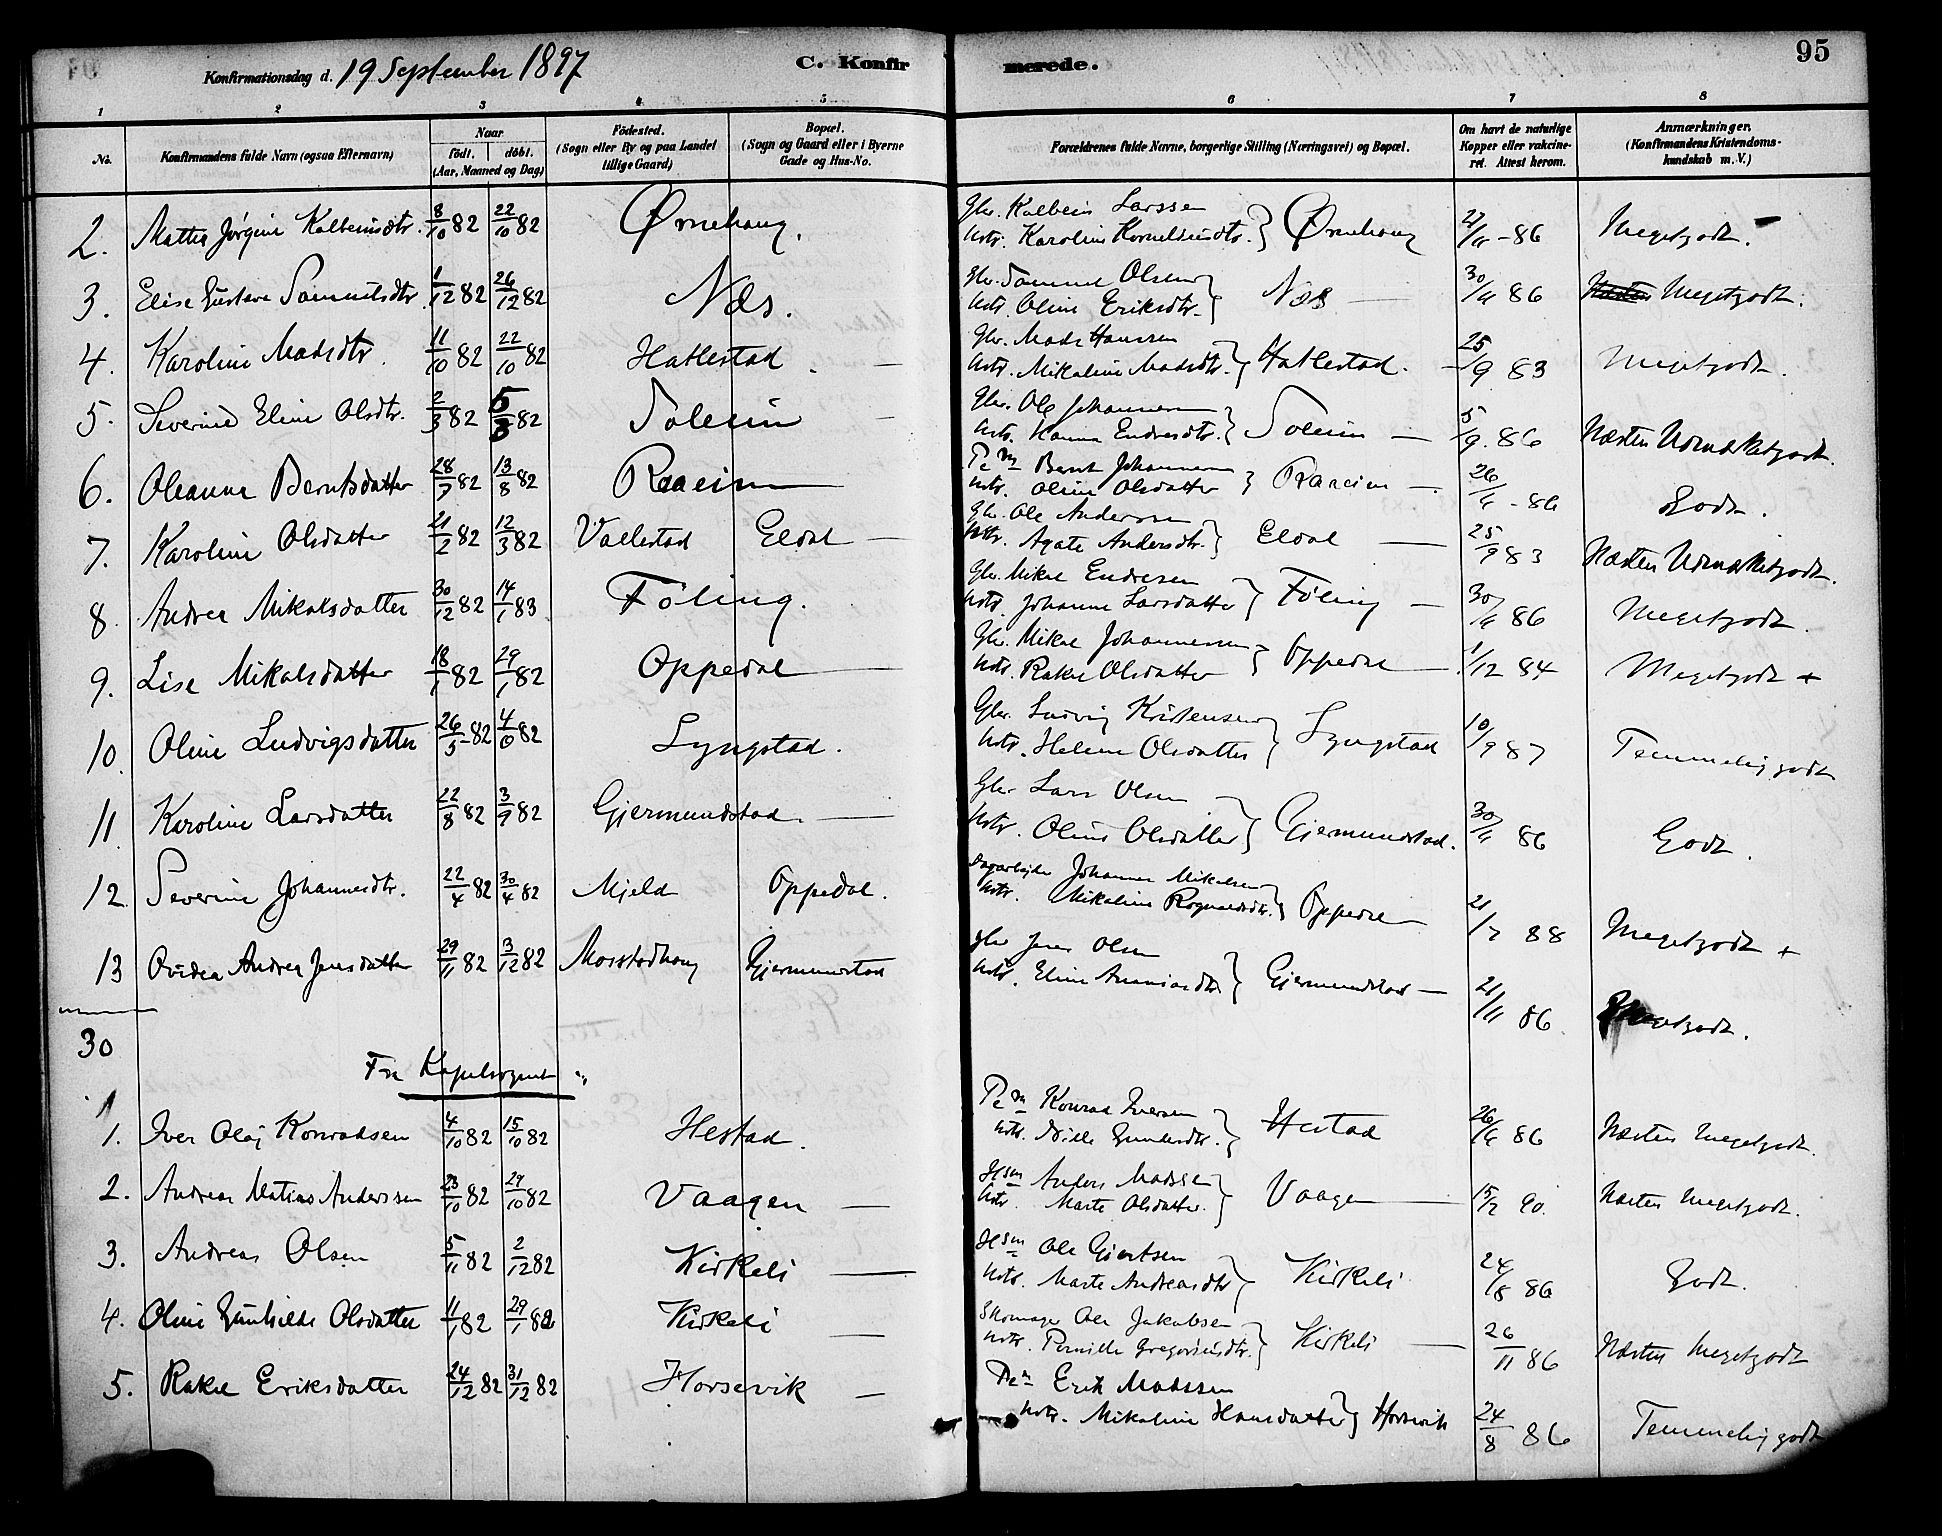 Konfirmationsdag d. 19 September 1897 C. Konfirmerede. 95
1 2 3 4 5 6 7 8
No. Konfirmandens fulde Navn (ogsaa Efternavn) Naar født. døbt. (Aar, Maaned og Dag) Fødested. (Sogn eller By og paa Landet tillige Gaard) Bopæl. (Sogn og Gaard eller i Byerne Gade og Hus-No. Forældrenes fulde Navne, borgerlige Stilling (Næringsvei) og Bopæl. Om havt de naturlige Kopper eller vakcineret. Attest herom. Anmærkninger. (Konfirmandens Kristendomskundskab m. V.)
2. 8/10 82 22/10 82 Ørnehaug. Gbr. Kolbein Larssen Ørnehaug 86 Megetgodt.
3. Elise Gustava Samuelsdtr. 1/12 82 26/12 82 Næs. Gbr. Samuel Olsen Hstr. Oline Eriksdtr. Næs 86 Megetgodt.
4. Karoline Madsdtr. 11/10 82 22/10 82 Hatlestad Gbr. Mads Hanssen Hstr. Mikaline Madsdtr. Hatlestad. 25/9 83 Megetgodt.
5. Severine Eline Olsdtr. 2/3 82 5/3 82 Soleim Gbr. Ole Johannessen Hstr. Hanna Endresdtr. Soleim 5/9. 86 Næsten Udmærketgodt.
6. Oleanna Berntsdatter 28/7 82 13/8 82 Raaeim Bernt Johannessen Hstr. Oline Olsdatter Raaeim 86 Godt.
7. Karoline Olsdatter 21/2 82 12/3 82 Vallestad Eldal Gbr. Ole Anderssen Hstr. Agate Andersdtr. Eldal 25/9 83 Næsten Udmærketgodt.
8. Andrea Mikalsdatter 30/12 82 14/1 83 Føling. Gbr. Mikal Endresen Hstr. Johanne Larsdatter Føling 86 Megetgodt.
9. Lise Mikalsdatter 18/1 82 29/1 82 Oppedal Gbr. Mikal Johannessen Hstr. Rakel Olsdatter Oppedal 1/12 84 Megetgodt +
10. Oline Ludvigsdatter 26/5 82 82 Lyngstad. Gbr. Ludvig Kristensen Hstr. Helene Olsdatter Lyngstad 10/9 87 Temmelig godt
11. Karoline Larsdatter 22/8 82 3/9 82 Gjermundstad. Gbr. Lars Olsen Hstr. Oline Olsdatter Gjermundstad. 86 Godt.
12. Severine Johannesdtr. 22/4 82 30/4 82 Mjeld Oppedal. Dagarbejder Johannes Mikalsen Hstr. Oppedal 88 Megetgodt +
13 Ovidea Andrea Jensdatter 29/11 82 3/12 82 Mosstadhaug Gjermundstad Gbr Jens Olsen Hstr. Eline Gjermundstad 21/11 86 Megetgodt.
30
Fra Kapelsognet
1. Iver Olaj Konradsen 4/10 82 15/10 82 Hestad. Konrad Iversen Hestad 86 Næsten Megetgodt.
2. Andreas Matias Anderssen 23/10 82 29/10 82 Vaagen Hsm Anders Madssen Hstr. Marte Olsdatter. Vaagen 90. Næsten Megetgodt.
3. Andreas Olsen 5/11 82 2/12 82 Kirkeli Hsm Ole Gjertsen Hstr. Marte Andreasdtr Kirkeli 24/8 86 Godt.
4. Oline Gunhilde Olsdatter 11/1 82 29/1 82 Kirkeli Skomager Ole Jakobsen Hstr. Pernille Gregoriusdtr. Kirkeli 26/11 86 Næsten Megetgodt
5. Rakel Eriksdatter 24/12 82 31/12 82 Horsevik Erik Madssen Hstr. Mikaline Hansdatter Horsevik 24/8 86 Temmelig godt